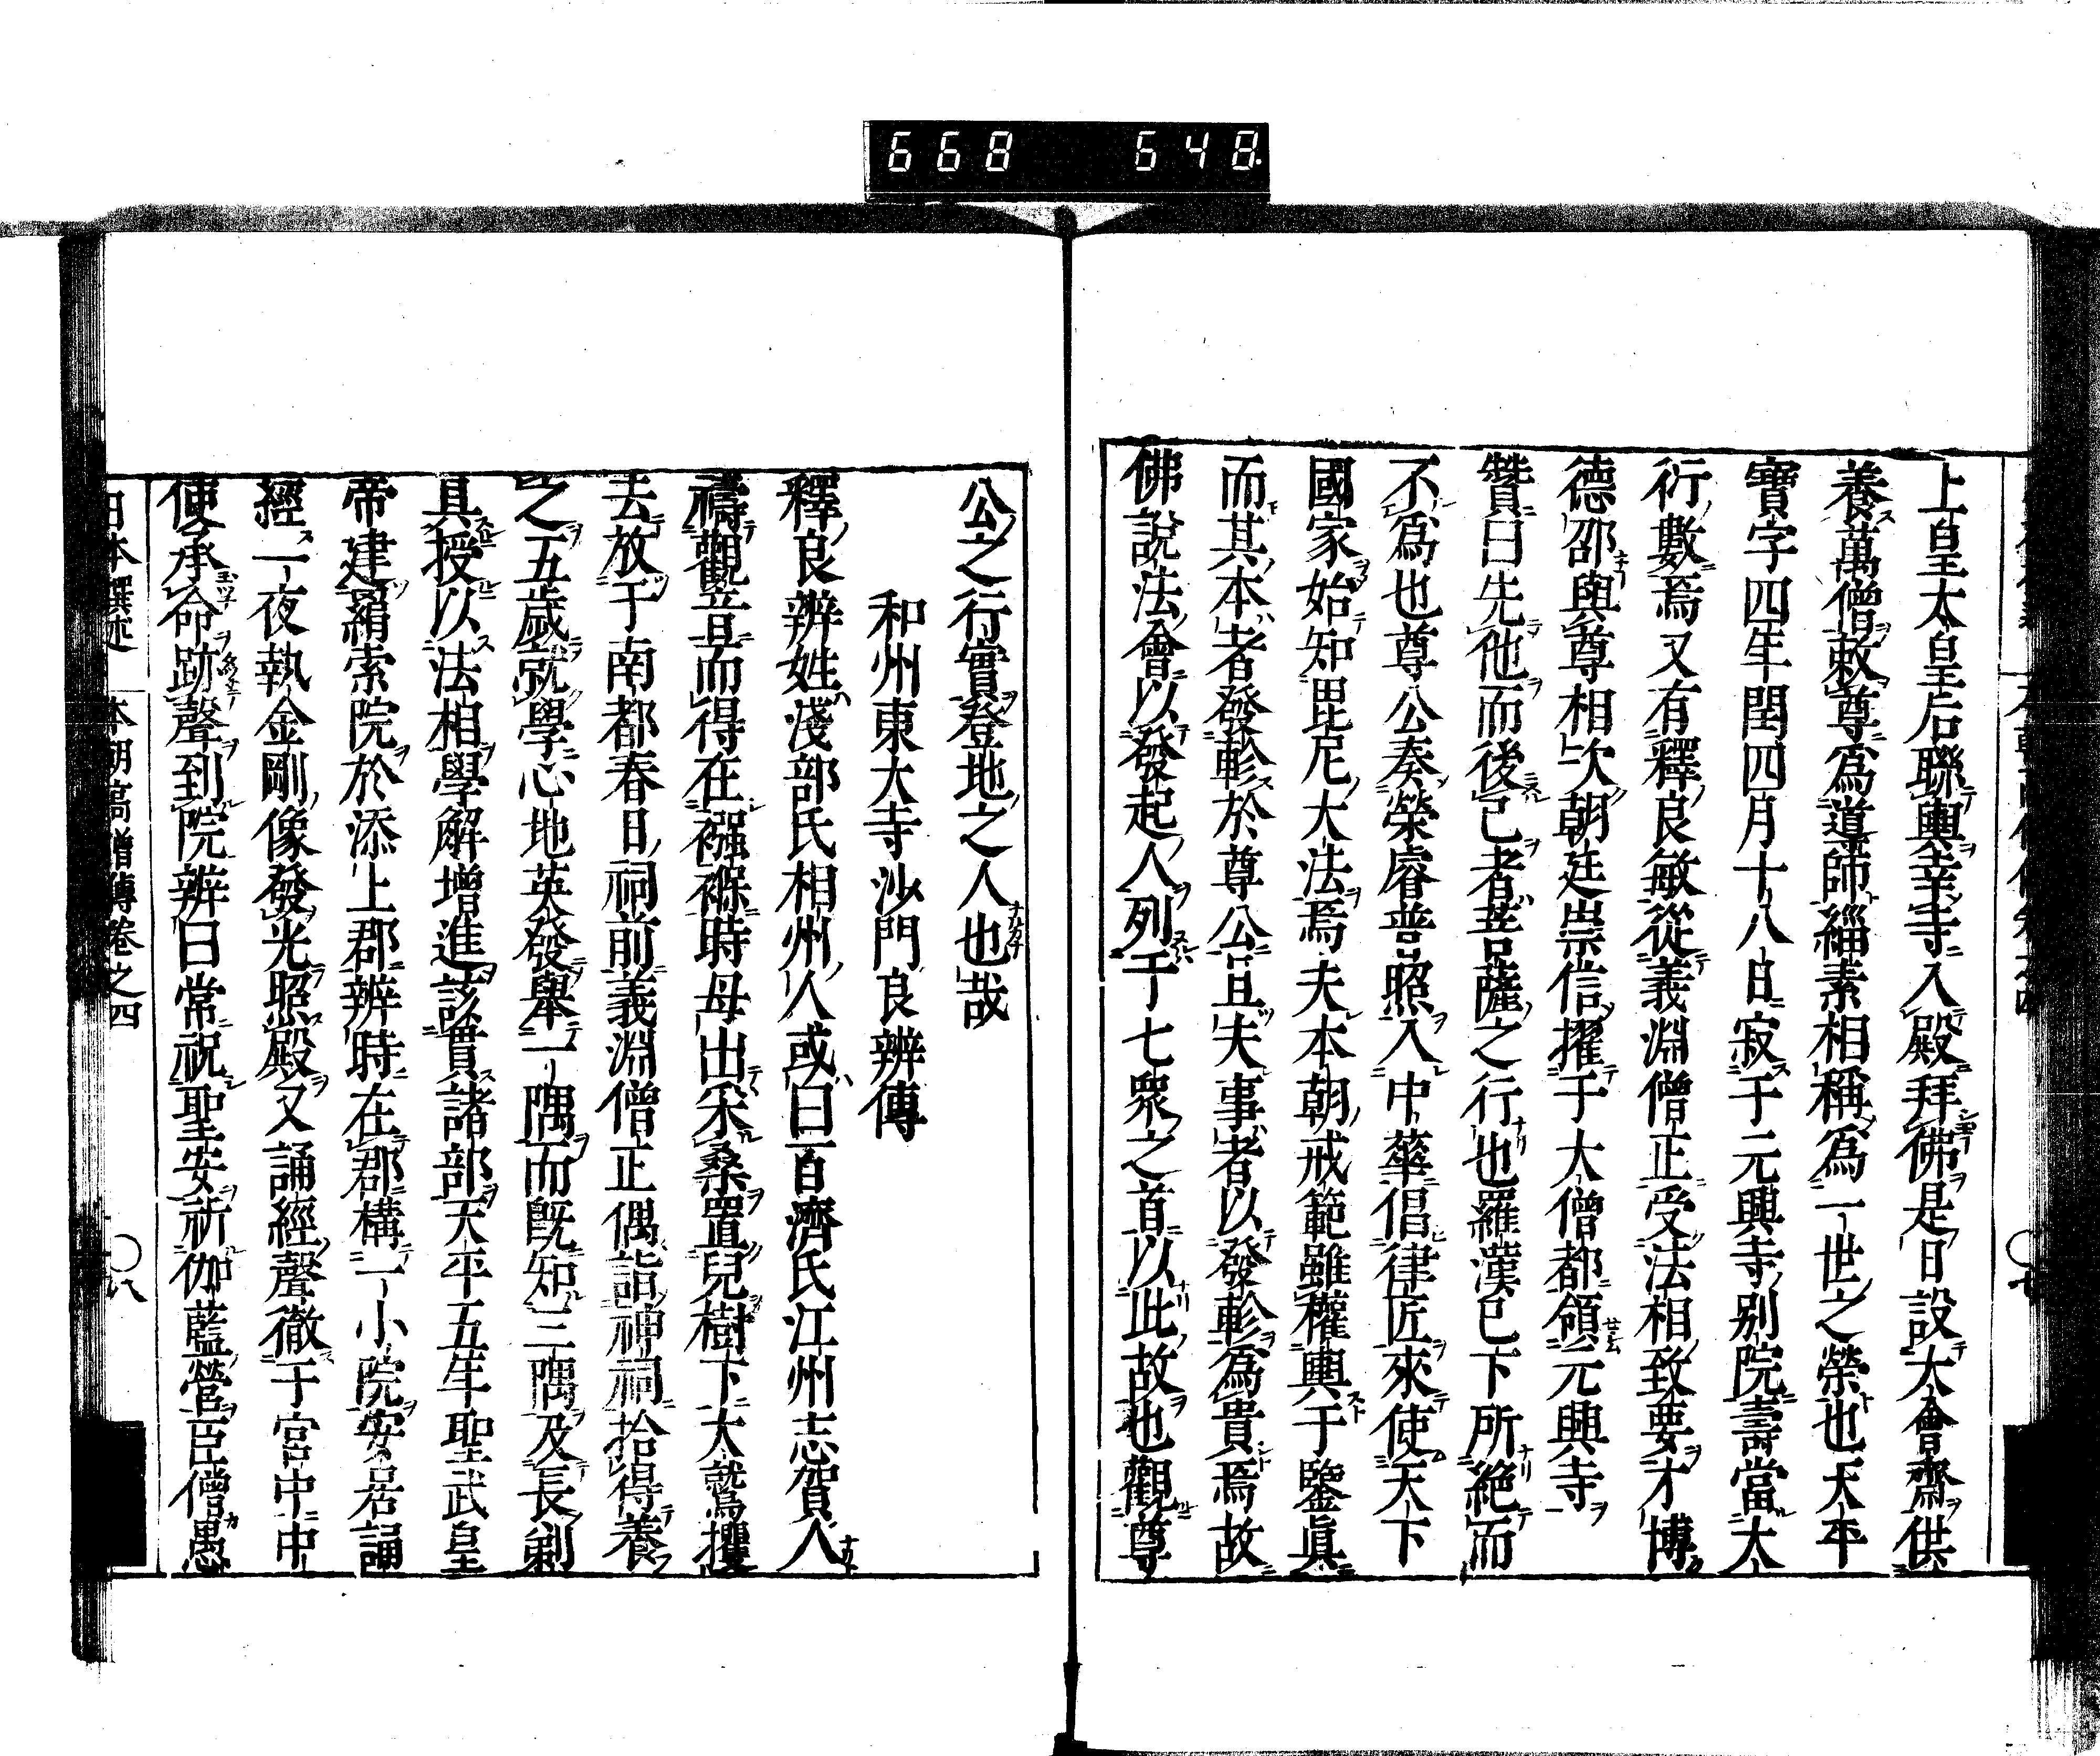 668 648
上皇太皇后聯輿幸寺入殿拜佛是日設大會齋供
養萬僧敕尊爲導師緇素相稱爲一世之榮也天平
寶字四年閏四月十八日寂于元興寺別院壽當大
衍數焉又有釋良敏從義淵僧正受法相致要才博
德邵與尊相次朝廷崇信擢于大僧都領元興寺
贊曰先他而後已者菩薩之行也羅漢已下所絶而
不爲也尊公奏榮睿普照入中華倡律匠來使天下
國家始知毘尼大法焉夫本朝戒範雖權輿于鑒眞
而其本者發軫於尊公且夫事者以發軫爲貴焉故
佛說法會以發起人列于七衆之首以此故也觀尊
公之行實登地之人也哉
和州東大寺沙門良辨傳
釋良辨姓淺部氏相州人或曰百濟氏江州志賀人
禱觀音而得在襁褓時母出采桑置兒樹下大鷲攫
去放于南都春日祠前義淵僧正偶詣神祠拾得養
之五歲就學心地英發舉一隅而既知三隅及長剃
具授以法相學解增進該貫諸部天平五年聖武皇
帝建羂索院於添上郡辨時在郡構一小院安居誦
經一夜執金剛像發光照殿又誦經聲徹于宮中中
使承命跡聲到院辨曰常祝聖安祈伽藍營臣僧愚
日本撰述 本朝高僧傳卷之四 八